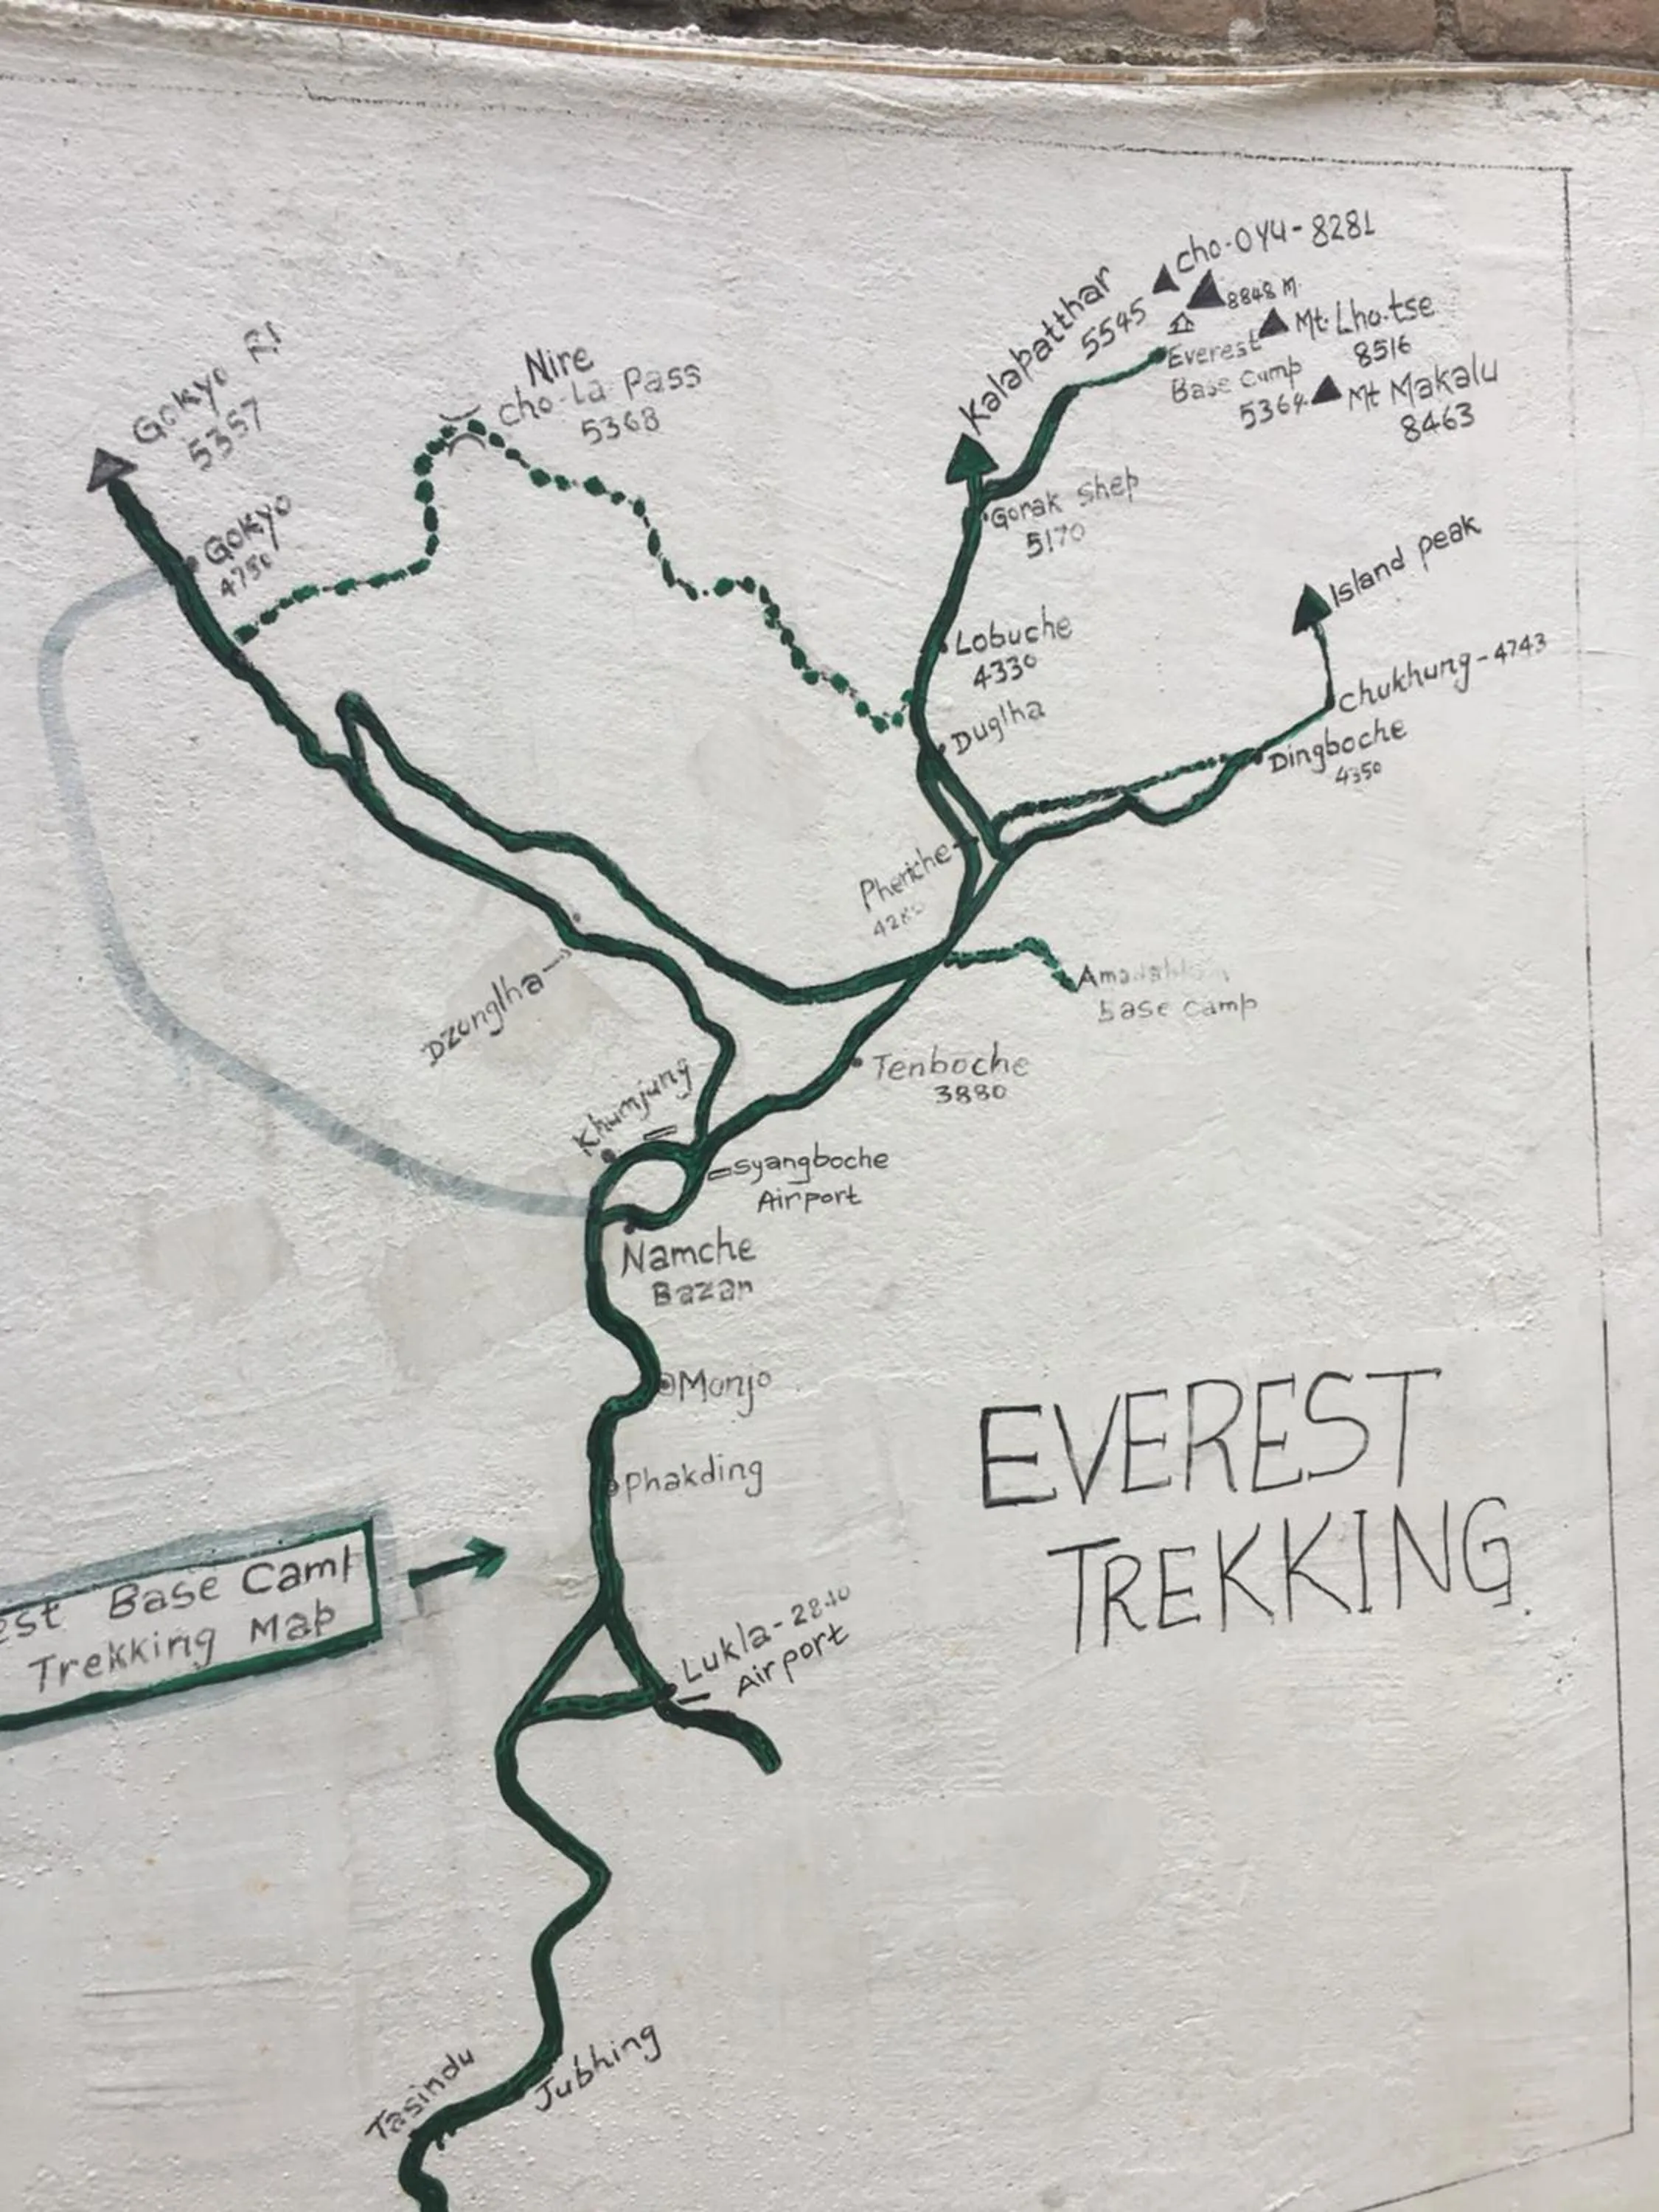 Cho-OYU-8281
8848 M
Kalapatthar
5545
Mt. Lho.tse
8516
Everest
Base Camp
5364
Mt Makalu
8463
Gokyo RI
5357
Nire
Cho-La Pass
5368
Gokyo
4750
Gorak Shep
5170
Island peak
Lobuche
4330
Chukhung-4743
Duglha
Dingboche
4350
Pheriche
Base Camp
Dzonglha
Tenboche
3880
Khumjung
Syangboche
Airport
Namche
Bazar
Monjo
Phakding
EVEREST
TREKKING
Base Camp
Trekking Map
Lukla-2840
Airport
Jubhing
Tasindu